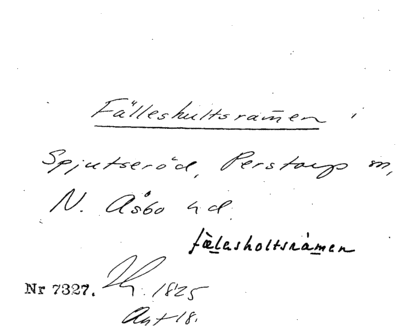 Fälleshultsramen
Spjutseröd, Perstorp m,
N. Åsbo hd.
fælasholtsràmen
Nr 7327. Th. 1825
Ant 18.